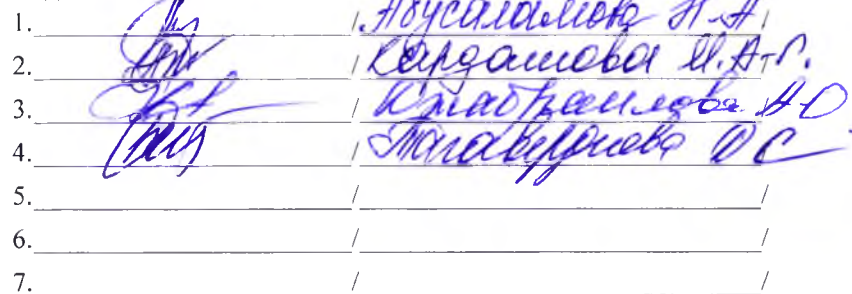 1. / Абусаламова Н.А /
2. / Кардашова М.А-Г. /
3. / Джабраилова А О /
4. / Тагавердиева О С /
5. / /
6. / /
7. / /